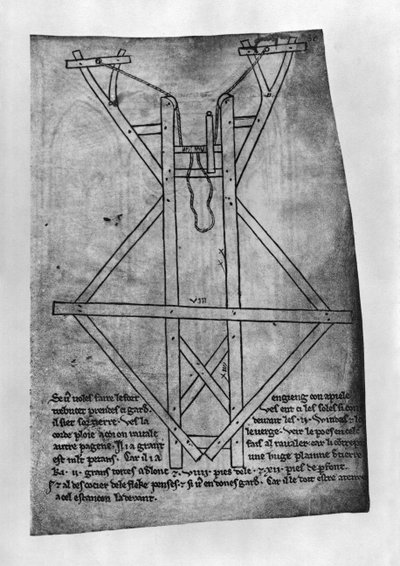 VIII
Se vos voles faire le fort engieng con apiele
trebucet prendes ci gard. Ves ent ci les soles si com
il siet sor tierre. Ves la devant les .ii. windas &
corde ploie a coi on ravale le verge. Veir le poes en cele
autre pagene. Il i a grant fais al ravaler car li
est mlt pezans. Car il i a une huge plainne de tierre
Ki .ii. grans toizes a de lonc & .viiii. pies de le & .xii. pies de
& al descocier de le fleke penses & si vos en dones gard. Car ille doit estre
a cel estancon la devant.